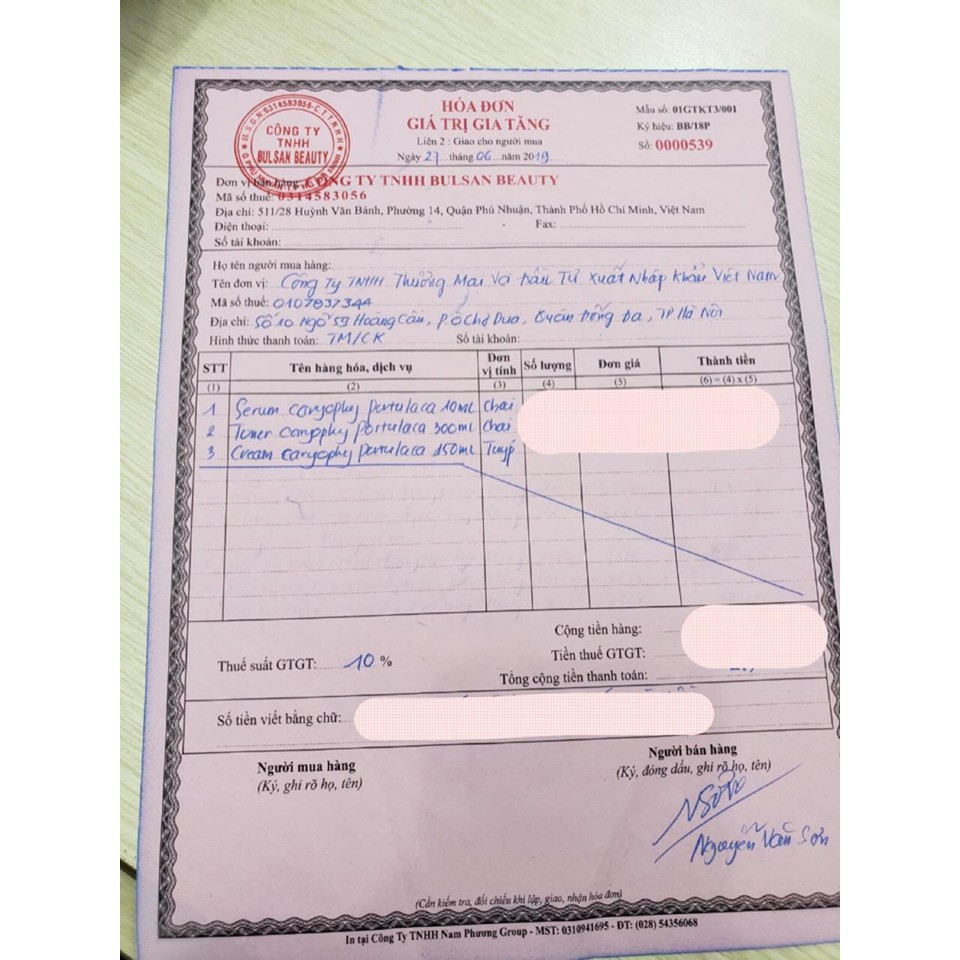 HÓA ĐƠN
GIÁ TRỊ GIA TĂNG
Liên 2 : Giao cho người mua
Ngày 27 tháng 06 năm 2019
Mẫu số: 01GTKT3/001
Ký hiệu: BB/18P
Số: 0000539
M.S.D.N:0314583056-C.T.T.N.H.H
CÔNG TY
TNHH
BULSAN BEAUTY
Đơn vị bán hàng: CÔNG TY TNHH BULSAN BEAUTY
Mã số thuế: 0314583056
Địa chỉ: 511/28 Huỳnh Văn Bánh, Phường 14, Quận Phú Nhuận, Thành Phố Hồ Chí Minh, Việt Nam
Điện thoại: Fax:
Số tài khoản:
Họ tên người mua hàng:
Tên đơn vị: Công Ty TNHH Thương Mại Và Đầu Tư Xuất Nhập Khẩu Việt Nam
Mã số thuế: 0107837344
Địa chỉ: Số 10 Ngõ 59 Hoàng Cầu, P.Ô Chợ Dừa, Quận Đống Đa, TP Hà Nội
Hình thức thanh toán: TM/CK Số tài khoản:
STT Tên hàng hóa, dịch vụ Đơn vị tính Số lượng Đơn giá Thành tiền
(1) (2) (3) (4) (5) (6) = (4) x (5)
1 Serum caryophy portulaca 10ml Chai
2 Toner caryophy portulaca 300ml Chai
3 Cream caryophy portulaca 150ml Tuýp
Cộng tiền hàng:
Thuế suất GTGT: 10 % Tiền thuế GTGT:
Tổng cộng tiền thanh toán:
Số tiền viết bằng chữ:
Người mua hàng
(Ký, ghi rõ họ, tên)
Người bán hàng
(Ký, đóng dấu, ghi rõ họ, tên)
Nguyễn Văn Sơn
(Cần kiểm tra, đối chiếu khi lập, giao, nhận hóa đơn)
In tại Công Ty TNHH Nam Phương Group - MST: 0310941695 - ĐT: (028) 54356068